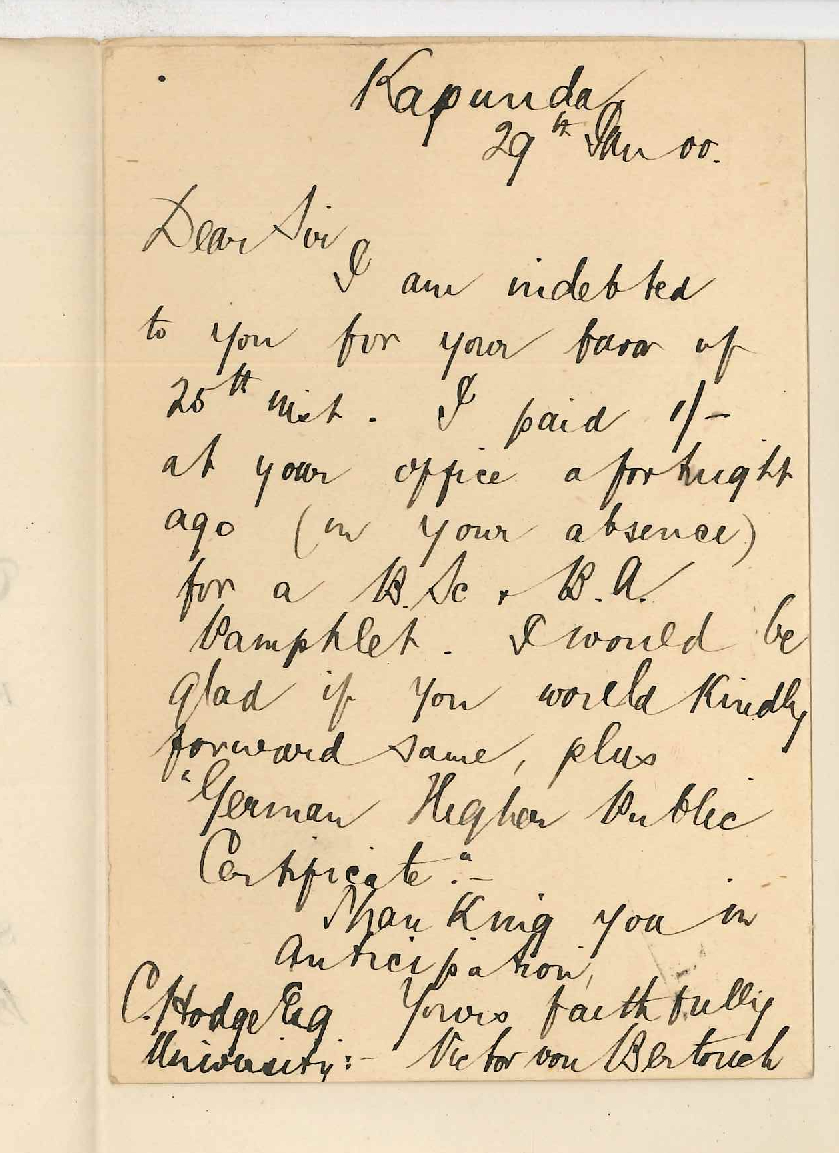 Kapunda
29th Jan 00.
Dear Sir
I am indebted
to you for your favor of
25th inst. I paid 1/-
at your office a fortnight
ago (in your absence)
for a B.Sc & B.A.
Pamphlet. I would be
glad if you would kindly
forward same, plus
"German Higher Public
Certificate".-
Thanking you in
anticipation,
C. Hodge Esq Yours faithfully
University:- Victor von Bertouch